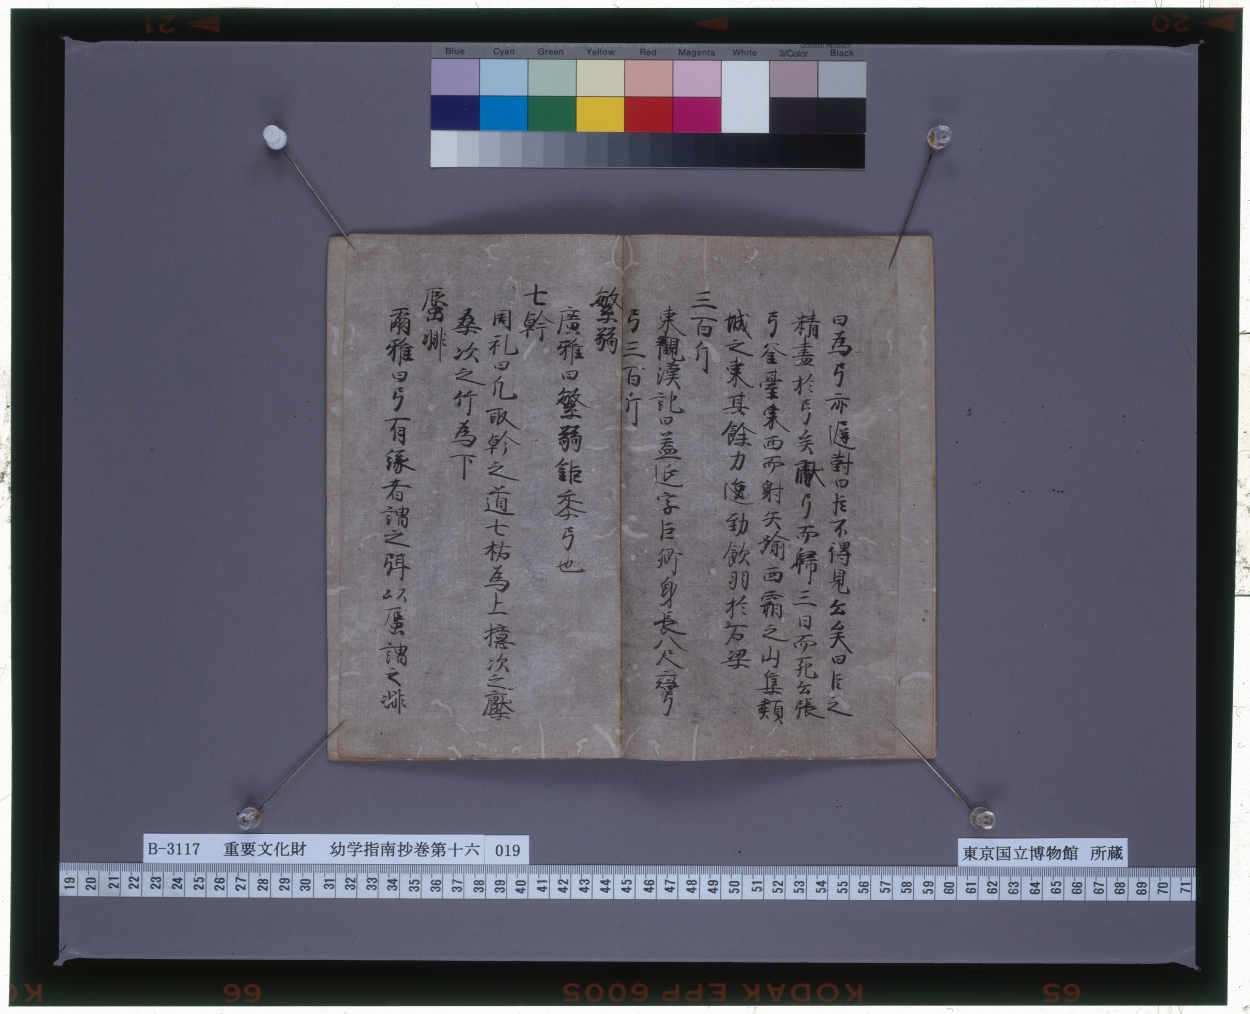 Blue Cyan Green Yellow Red Magenta White 3/Color Black
曰為弓亦遲對曰臣不得見公矣曰臣之
精盡於弓矣獻弓而歸三日而死公張
弓登臺東西而射矢踰西霜之山集類
城之東其餘力復勁飲羽於石梁
三百斤
東觀漢記曰蓋延字巨卿身長八尺彎
弓三百斤
繁弱
廣雅曰繁弱鉅黍弓也
七幹
周礼曰凡取幹之道七柘為上檍次之檿
桑次之竹為下
蜃
爾雅曰弓有緣者謂之弭以蜃謂之
B-3117 重要文化財 幼学指南抄巻第十六 019
東京国立博物館 所蔵
19 20 21 22 23 24 25 26 27 28 29 30 31 32 33 34 35 36 37 38 39 40 41 42 43 44 45 46 47 48 49 50 51 52 53 54 55 56 57 58 59 60 61 62 63 64 65 66 67 68 69 70 71
21 20
66 KODAK EPP 6005 65